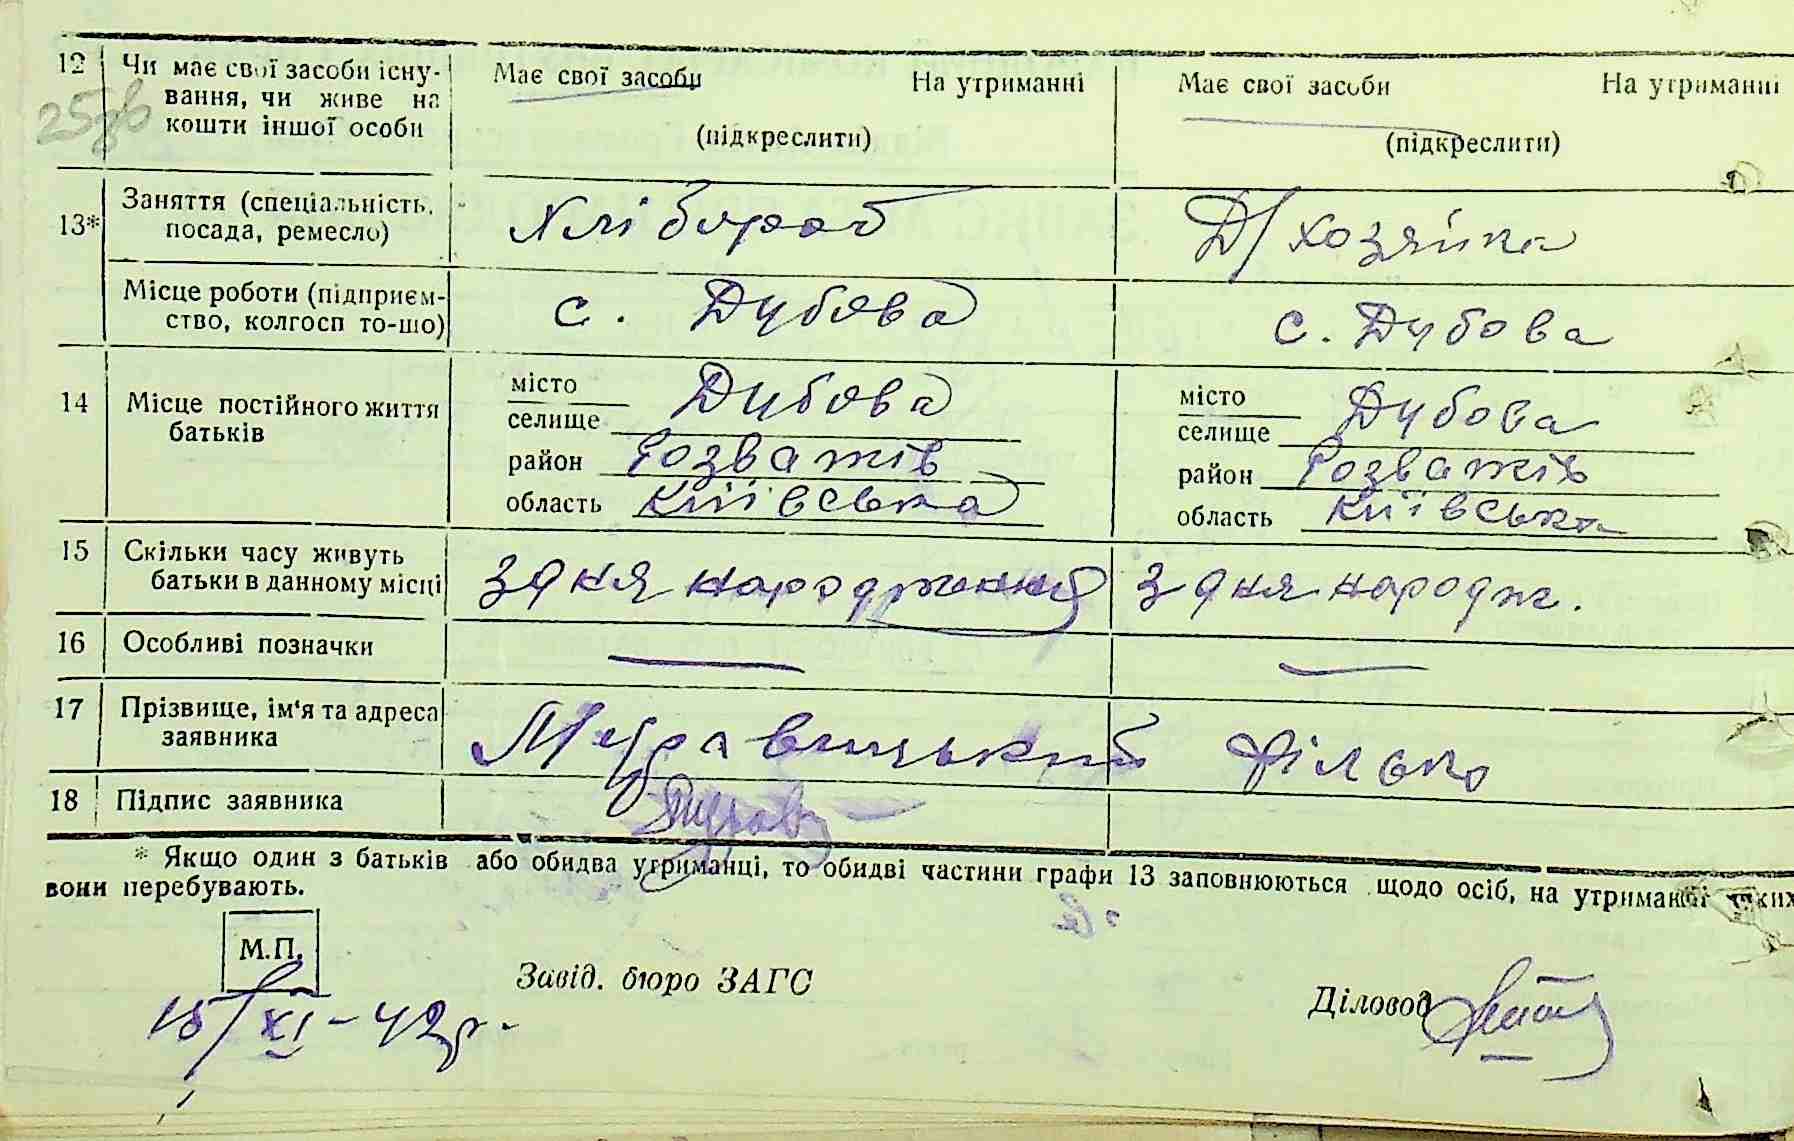 12 Чи має свої засоби існу- Має свої засоби На утриманні Має свої засоби На утриманні
вання, чи живе на
кошти іншої особи (підкреслити) (підкреслити)
Заняття (спеціальність, Хлібороб Д/хозяйка
13* посада, ремесло)
Місце роботи (підприєм- с. Дубова с. Дубова
ство, колгосп то-що)
місто Дубова місто Дубова
14 Місце постійного життя селище селище
батьків район Розважів район Розважів
область Київська область Київська
15 Скільки часу живуть
батьки в данному місці з дня народження з дня народж.
16 Особливі позначки — —
17 Прізвище, ім'я та адреса Муравицький Філько
заявника
18 Підпис заявника
* Якщо один з батьків або обидва утриманці, то обидві частини графи 13 заповнюються щодо осіб, на утриманні яких
вони перебувають.
М.П.
Завід. бюро ЗАГС Діловод
15/XI-42р.